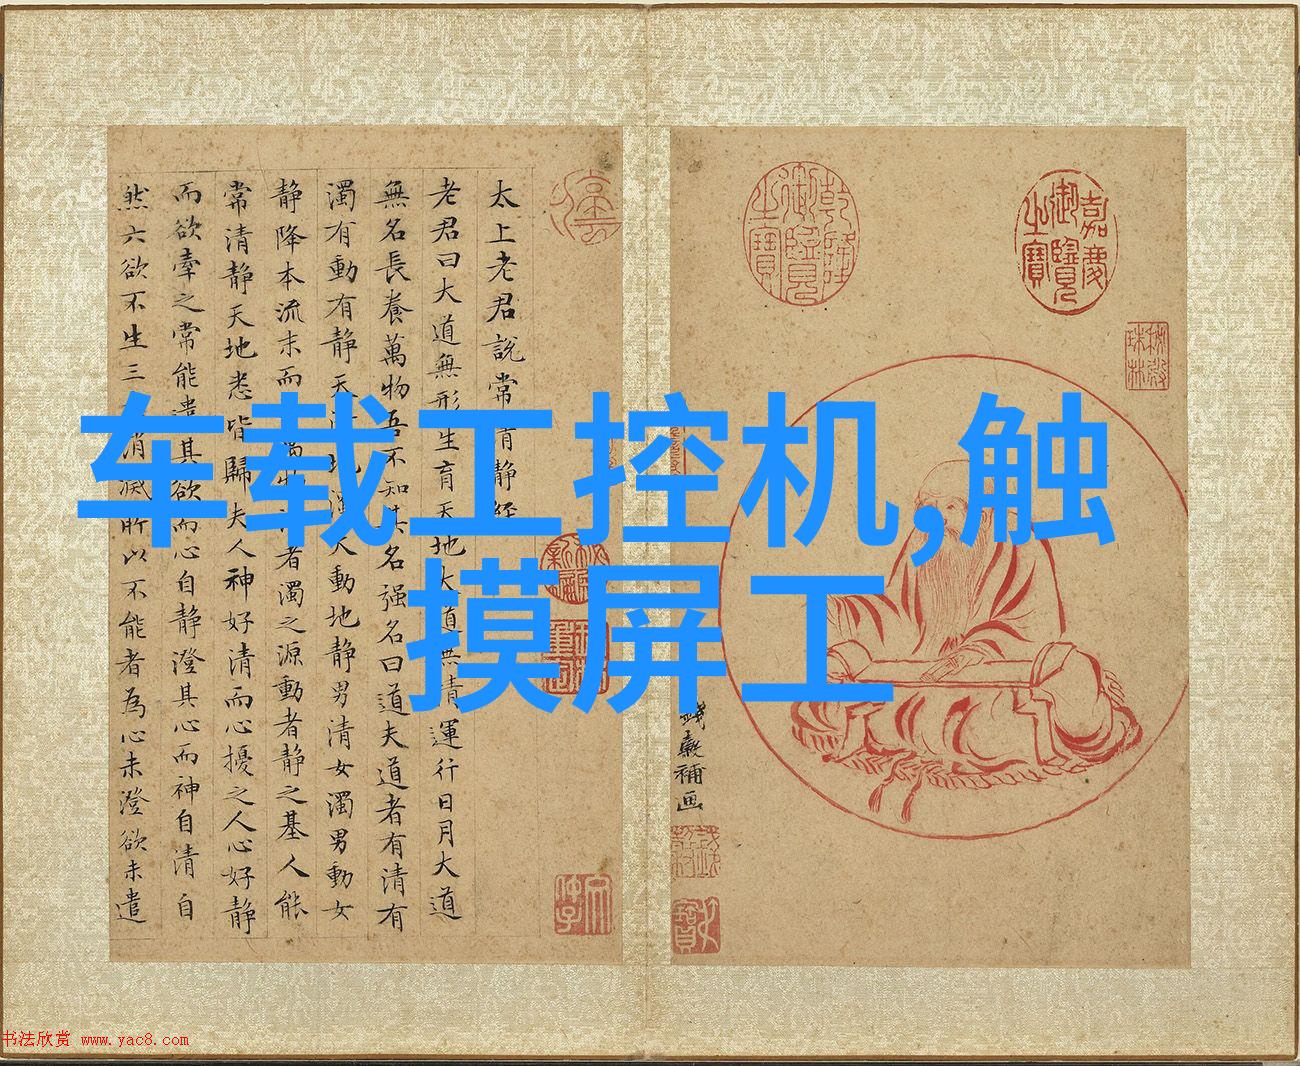 车载工控机,触
摸屏工
嘉慶御覽之寶
乾隆御覽之寶
秘殿珠林
錢穀補画
太上老君說常清静經
老君曰大道無形生育天地大道無情運行日月大道
無名長養萬物吾不知其名强名曰道夫道者有清有
濁有動有静天清地濁天動地静男清女濁男動女
静降本流末而生萬物清者濁之源動者静之基人能
常清静天地悉皆歸夫人神好清而心擾之人心好静
而欲牽之常能遣其欲而心自静澄其心而神自清自
然六欲不生三毒消滅所以不能者為心未澄欲未遣
书法欣赏 www.yac8.com